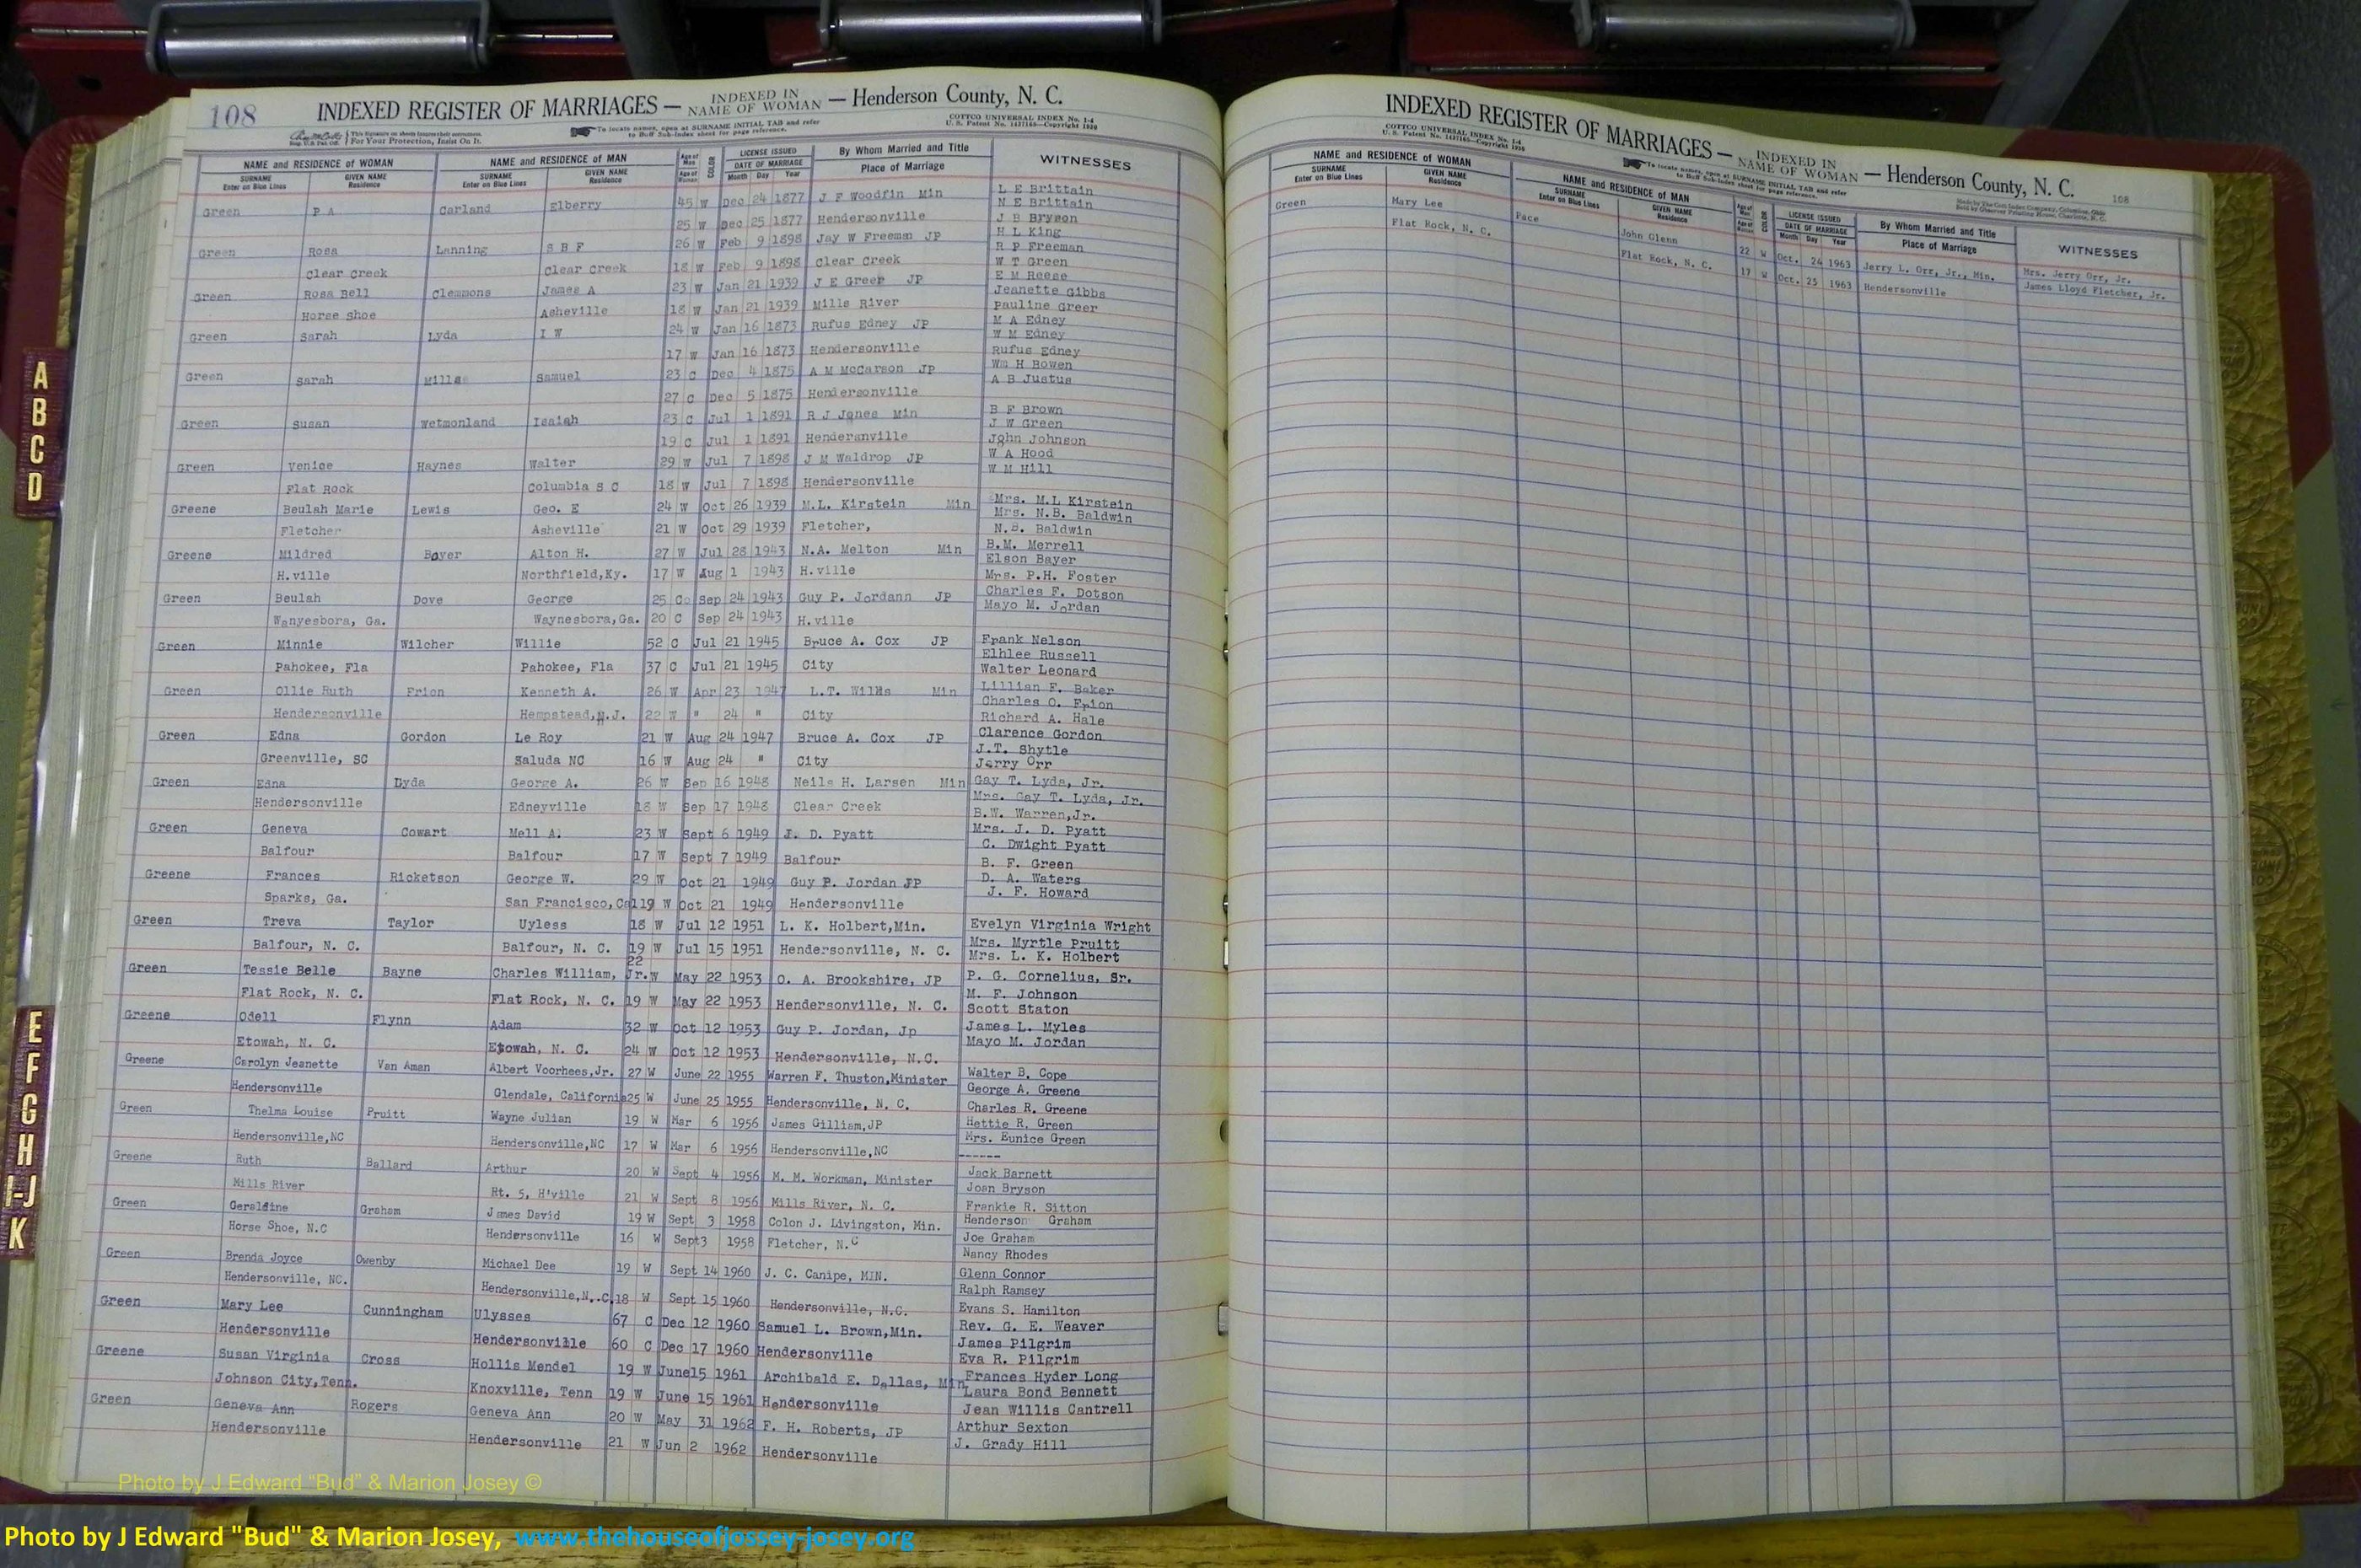 108 INDEXED REGISTER OF MARRIAGES — INDEXED IN NAME OF WOMAN — Henderson County, N. C.
This signature on sheets
For Your Protection, Insist On It.
To locate names, open at SURNAME INITIAL TAB and refer
to Buff Sub-Index sheet for page reference.
COTTCO UNIVERSAL INDEX No. 1-4
U. S. Patent No. 1437160—Copyright 1930
NAME and RESIDENCE OF WOMAN NAME and RESIDENCE OF MAN Age of Man Age of Woman COLOR LICENSE ISSUED DATE OF MARRIAGE By Whom Married and Title Place of Marriage WITNESSES
SURNAME Enter on Blue Lines GIVEN NAME Residence SURNAME Enter on Blue Lines GIVEN NAME Residence Month Day Year
Green P A Garland Elberry 45 W Dec 24 1877 J F Woodfin Min L E Brittain
N E Brittain
25 W Dec 25 1877 Hendersonville J B Bryson
Green Rosa Lanning S B F 26 W Feb 9 1898 Jay W Freeman JP H L King
R P Freeman
Clear Creek Clear Creek 18 W Feb 9 1898 Clear Creek W T Green
Green Rosa Bell Clemmons James A 23 W Jan 21 1939 J E Greer JP E M Reese
Jeanette Gibbs
Horse Shoe Asheville 18 W Jan 21 1939 Mills River Pauline Greer
Green Sarah Lyda I W 24 W Jan 16 1873 Rufus Edney JP M A Edney
W M Edney
17 W Jan 16 1873 Hendersonville Rufus Edney
Green Sarah Mills Samuel 23 C Dec 4 1875 A M McCarson JP Wm H Bowen
A B Justus
27 C Dec 5 1875 Hendersonville
Green Susan Wetmonland Isaiah 23 C Jul 1 1891 R J Jones Min B F Brown
J W Green
19 C Jul 1 1891 Henderanville John Johnson
Green Venice Haynes Walter 29 W Jul 7 1898 J M Waldrop JP W A Hood
W M Hill
Flat Rock Columbia S C 18 W Jul 7 1898 Hendersonville
Greene Beulah Marie Lewis Geo. E 24 W Oct 26 1939 M.L. Kirstein Min Mrs. M.L Kirstein
Mrs. N.B. Baldwin
Fletcher Asheville 21 W Oct 29 1939 Fletcher, N.B. Baldwin
Greene Mildred Boyer Alton H. 27 W Jul 28 1943 N.A. Melton Min B.M. Merrell
Elson Bayer
H.ville Northfield,Ky. 17 W Aug 1 1943 H.ville Mrs. P.H. Foster
Green Beulah Dove George 25 Co Sep 24 1943 Guy P. Jordann JP Charles F. Dotson
Mayo M. Jordan
Wanyesbora, Ga. Waynesbora,Ga. 20 C Sep 24 1943 H.ville
Green Minnie Wilcher Willie 52 C Jul 21 1945 Bruce A. Cox JP Frank Nelson
Elhlee Russell
Pahokee, Fla Pahokee, Fla 37 C Jul 21 1945 City Walter Leonard
Green Ollie Ruth Frion Kenneth A. 26 W Apr 23 1947 L.T. Min Lillian F. Baker
Charles O. Frion
Hendersonville Hempstead,N.J. 22 W " 24 " City Richard A. Hale
Green Edna Gordon Le Roy 21 W Aug 24 1947 Bruce A. Cox JP Clarence Gordon
J.T. Shytle
Greenville, SC Saluda NC 16 W Aug 24 " City Jerry Orr
Green Edna Lyda George A. 26 W Sep 16 1948 Neils H. Larsen Min Gay T. Lyda, Jr.
Mrs. Gay T. Lyda, Jr.
Hendersonville Edneyville 18 W Sep 17 1948 Clear Creek B.W. Warren,Jr.
Green Geneva Cowart Mell A. 23 W Sept 6 1949 J. D. Pyatt Mrs. J. D. Pyatt
C. Dwight Pyatt
Balfour Balfour 17 W Sept 7 1949 Balfour B. F. Green
Greene Frances Ricketson George W. 29 W Oct 21 1949 Guy P. Jordan JP D. A. Waters
J. F. Howard
Sparks, Ga. San Francisco,Cal 19 W Oct 21 1949 Hendersonville
Green Treva Taylor Uyless 18 W Jul 12 1951 L. K. Holbert,Min. Evelyn Virginia Wright
Mrs. Myrtle Pruitt
Balfour, N. C. Balfour, N. C. 19 W Jul 15 1951 Hendersonville, N. C. Mrs. L. K. Holbert
22
Green Tessie Belle Bayne Charles William, Jr. W May 22 1953 O. A. Brookshire, JP P. G. Cornelius, Sr.
M. F. Johnson
Flat Rock, N. C. Flat Rock, N. C. 19 W May 22 1953 Hendersonville, N. C. Scott Staton
Greene Odell Flynn Adam 32 W Oct 12 1953 Guy P. Jordan, Jp James L. Myles
Etowah, N. C. Etowah, N. C. 24 W Oct 12 1953 Hendersonville, N.C. Mayo M. Jordan
Greene Carolyn Jeanette Van Aman Albert Voorhees,Jr. 27 W June 22 1955 Warren F. Thuston,Minister Walter B. Cope
George A. Greene
Hendersonville Glendale, California 25 W June 25 1955 Hendersonville, N. C. Charles R. Greene
Green Thelma Louise Pruitt Wayne Julian 19 W Mar 6 1956 James Gilliam,JP Hettie R. Green
Mrs. Eunice Green
Hendersonville,NC Hendersonville,NC 17 W Mar 6 1956 Hendersonville,NC ------
Greene Ruth Ballard Arthur 20 W Sept 4 1956 M. M. Workman, Minister Jack Barnett
Joan Bryson
Mills River Rt. 5, H'ville 21 W Sept 8 1956 Mills River, N. C. Frankie R. Sitton
Green Geraldine Graham James David 19 W Sept 3 1958 Colon J. Livingston, Min. Henderson Graham
Joe Graham
Horse Shoe, N.C Hendersonville 16 W Sept3 1958 Fletcher, N.C Nancy Rhodes
Green Brenda Joyce Owenby Michael Dee 19 W Sept 14 1960 J. C. Canipe, MIN. Glenn Connor
Ralph Ramsey
Hendersonville, NC. Hendersonville,N..C. 18 W Sept 15 1960 Hendersonville, N.C. Evans S. Hamilton
Green Mary Lee Cunningham Ulysses 67 C Dec 12 1960 Samuel L. Brown,Min. Rev. G. E. Weaver
James Pilgrim
Hendersonville Hendersonville 60 C Dec 17 1960 Hendersonville Eva R. Pilgrim
Greene Susan Virginia Cross Hollis Mendel 19 W June15 1961 Archibald E. Dallas, Min Frances Hyder Long
Laura Bond Bennett
Johnson City,Tenn. Knoxville, Tenn 19 W June 15 1961 Hendersonville Jean Willis Cantrell
Green Geneva Ann Rogers Geneva Ann 20 W May 31 1962 F. H. Roberts, JP Arthur Sexton
J. Grady Hill
Hendersonville Hendersonville 21 W Jun 2 1962 Hendersonville
INDEXED REGISTER OF MARRIAGES — INDEXED IN NAME OF WOMAN — Henderson County, N. C. 108
COTTCO UNIVERSAL INDEX No. 1-4
U. S. Patent No. 1437160—Copyright 1930
To locate names, open at SURNAME INITIAL TAB and refer
to Buff Sub-Index sheet for page reference.
NAME and RESIDENCE OF WOMAN NAME and RESIDENCE OF MAN Age of Man Age of Woman COLOR LICENSE ISSUED DATE OF MARRIAGE By Whom Married and Title Place of Marriage WITNESSES
SURNAME Enter on Blue Lines GIVEN NAME Residence SURNAME Enter on Blue Lines GIVEN NAME Residence Month Day Year
Green Mary Lee Pace John Glenn 22 W Oct. 24 1963 Jerry L. Orr, Jr., Min. Mrs. Jerry Orr, Jr.
Flat Rock, N. C. Flat Rock, N. C. 17 W Oct. 25 1963 Hendersonville James Lloyd Fletcher, Jr.
A
B
C
D
E
F
G
H
I-J
K
Photo by J Edward "Bud" & Marion Josey ©
Photo by J Edward "Bud" & Marion Josey, www.thehouseofjossey-josey.org